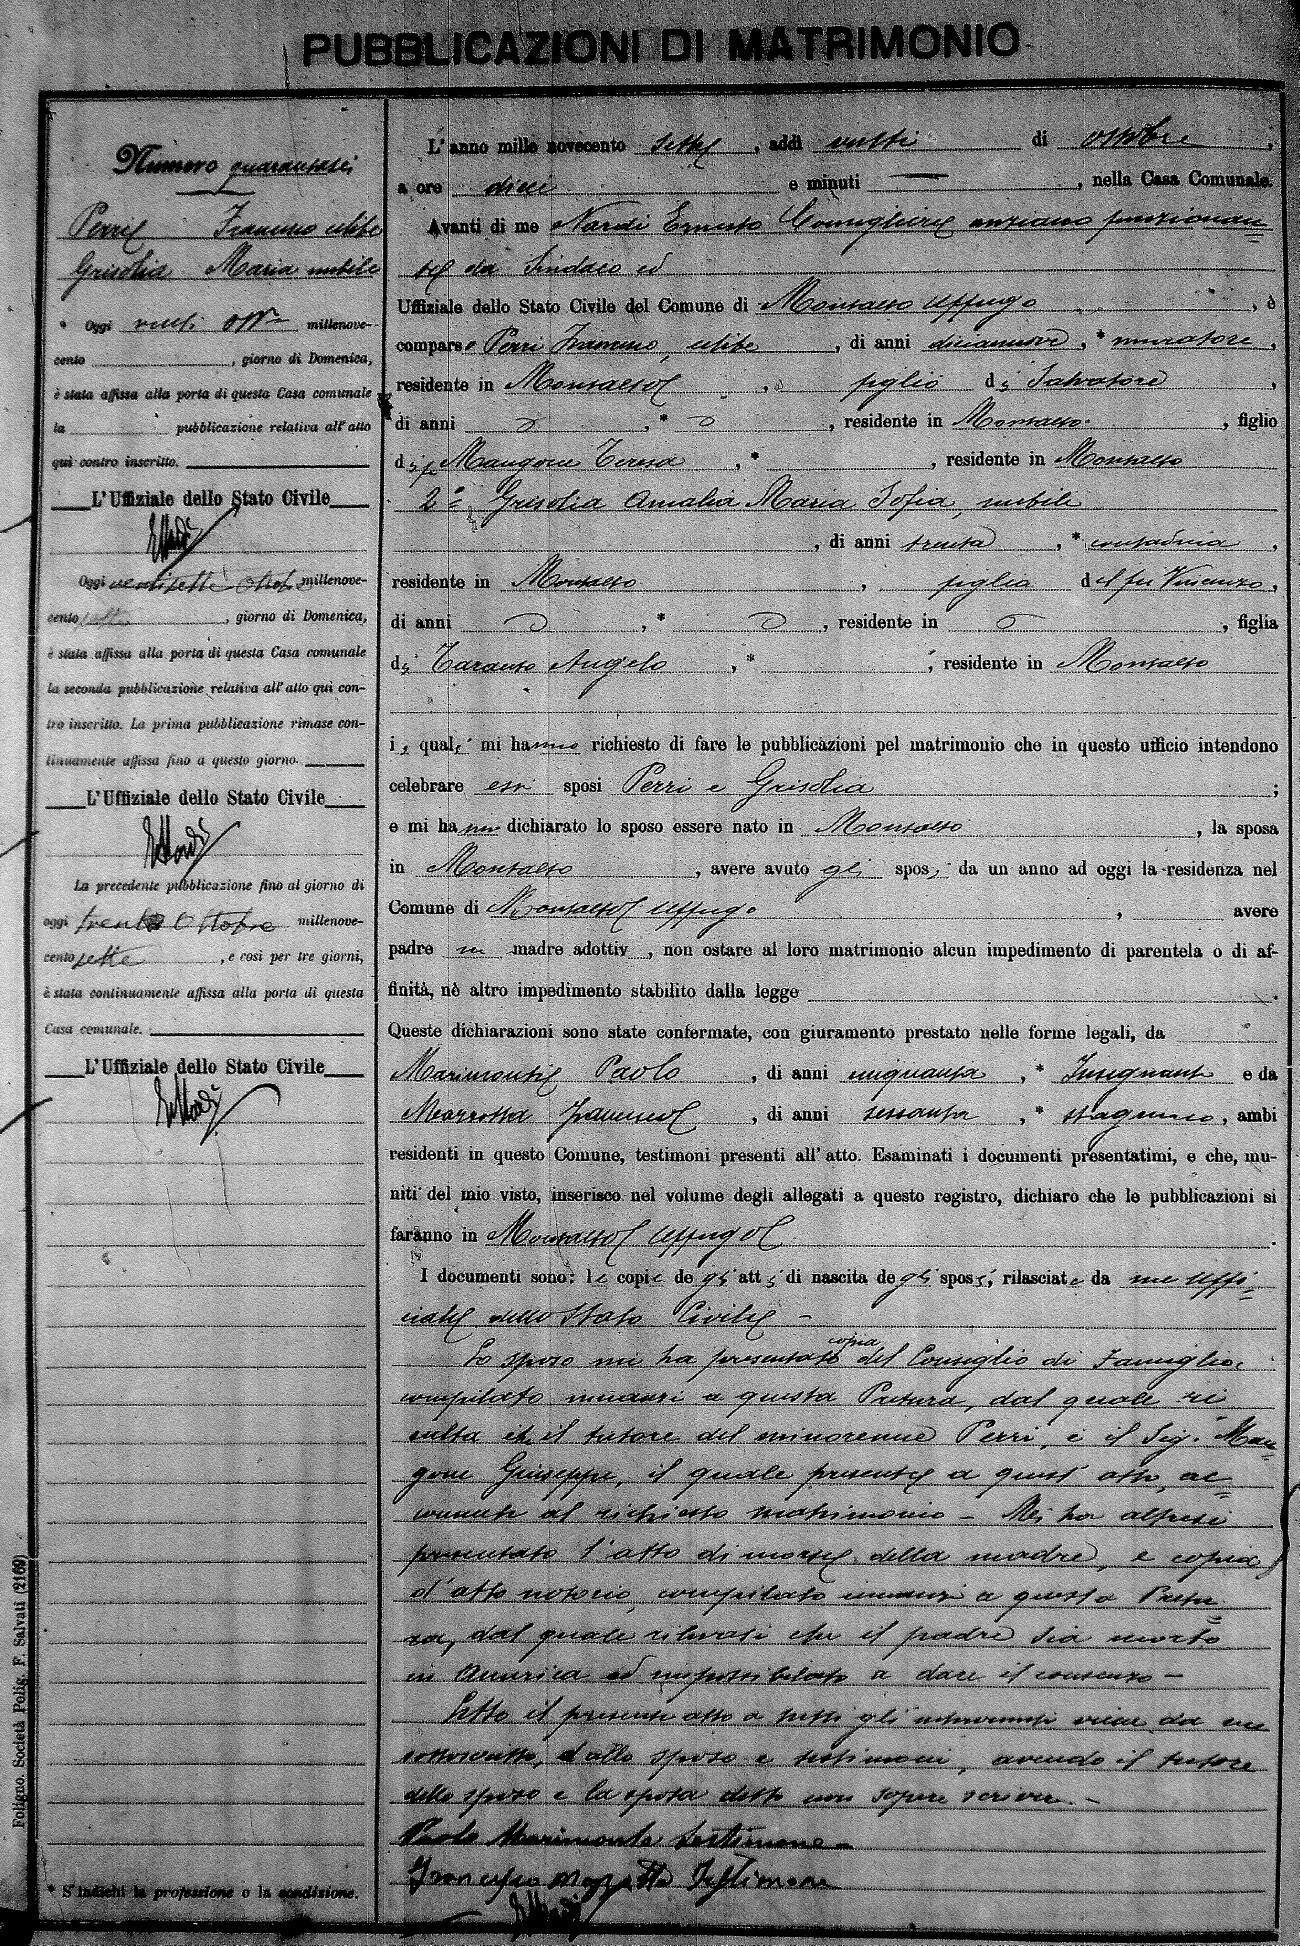 PUBBLICAZIONI DI MATRIMONIO
Numero quarantasei
Perri Francesco celibe
Grisolia Maria nubile
* Oggi venti ott.e millenove-
cento , giorno di Domenica,
è stata affissa alla porta di questa Casa comunale
la pubblicazione relativa all'atto
qui contro inscritto.
L'Uffiziale dello Stato Civile
ENardi
Oggi ventisette Ottobre millenove-
cento sette , giorno di Domenica,
è stata affissa alla porta di questa Casa comunale
la seconda pubblicazione relativa all'atto qui con-
tro inscritto. La prima pubblicazione rimase con-
tinuamente affissa fino a questo giorno.
L'Uffiziale dello Stato Civile
ENardi
La precedente pubblicazione fino al giorno di
oggi trenta Ottobre millenove-
cento sette , e così per tre giorni,
è stata continuamente affissa alla porta di questa
Casa comunale.
L'Uffiziale dello Stato Civile
ENardi
* S'indichi la professione o la condizione.
Foligno. Società Polig. F. Salvati (2169)
L'anno mille novecento sette, addì venti di ottobre,
a ore dieci e minuti — , nella Casa Comunale.
Avanti di me Nardi Ernesto Consigliere anziano funzionan=
te da Sindaco ed
Uffiziale dello Stato Civile del Comune di Montalto Uffugo , è
comparso Perri Francesco, celibe , di anni diciannove, * muratore,
residente in Montalto , figlio di Salvatore ,
di anni , * , residente in Montalto , figlio
di Mangone Teresa , * , residente in Montalto
2° Grisolia Amalia Maria Sofia, nubile
, di anni trenta , * contadina ,
residente in Montalto , figlia del fu Vincenzo,
di anni , * , residente in , figlia
di Taranto Angela , * , residente in Montalto
i quali mi hanno richiesto di fare le pubblicazioni pel matrimonio che in questo ufficio intendono
celebrare essi sposi Perri e Grisolia ;
e mi hanno dichiarato lo sposo essere nato in Montalto , la sposa
in Montalto , avere avuto gli sposi da un anno ad oggi la residenza nel
Comune di Montalto Uffugo , avere
padre madre adottiv , non ostare al loro matrimonio alcun impedimento di parentela o di af-
finità, nè altro impedimento stabilito dalla legge .
Queste dichiarazioni sono state confermate, con giuramento prestato nelle forme legali, da
Marimonte Paolo , di anni cinquanta , * Insegnante e da
Mazzotta Francesco , di anni sessanta , * stagnino, ambi
residenti in questo Comune, testimoni presenti all'atto. Esaminati i documenti presentatimi, e che, mu-
niti del mio visto, inserisco nel volume degli allegati a questo registro, dichiaro che le pubblicazioni si
faranno in Montalto Uffugo .
I documenti sono: le copie degli atti di nascita degli sposi, rilasciate da me Uffi=
ciale dello Stato Civile —
Lo sposo mi ha presentato copia del Consiglio di Famiglia,
compilato innanzi a questa Pretura, dal quale ri
sulta che il tutore del minorenne Perri, è il Sig. Man=
gone Giuseppe, il quale presente a quest'atto, ac=
consente al richiesto matrimonio — Mi ha altresì
presentato l'atto di morte della madre, e copia
d'atto notorio, compilato innanzi a questa Pretu=
ra, dal quale rilevasi che il padre sia
in America ed impossibilitato a dare il consenso —
Letto il presente atto a tutti gli intervenuti viene da me
sottoscritto, dallo sposo e testimoni, avendo il tutore
dello sposo e la sposa detto non sapere scrivere. —
Paolo Marimonte testimone —
Francesco Mazzotta Testimone
ENardi